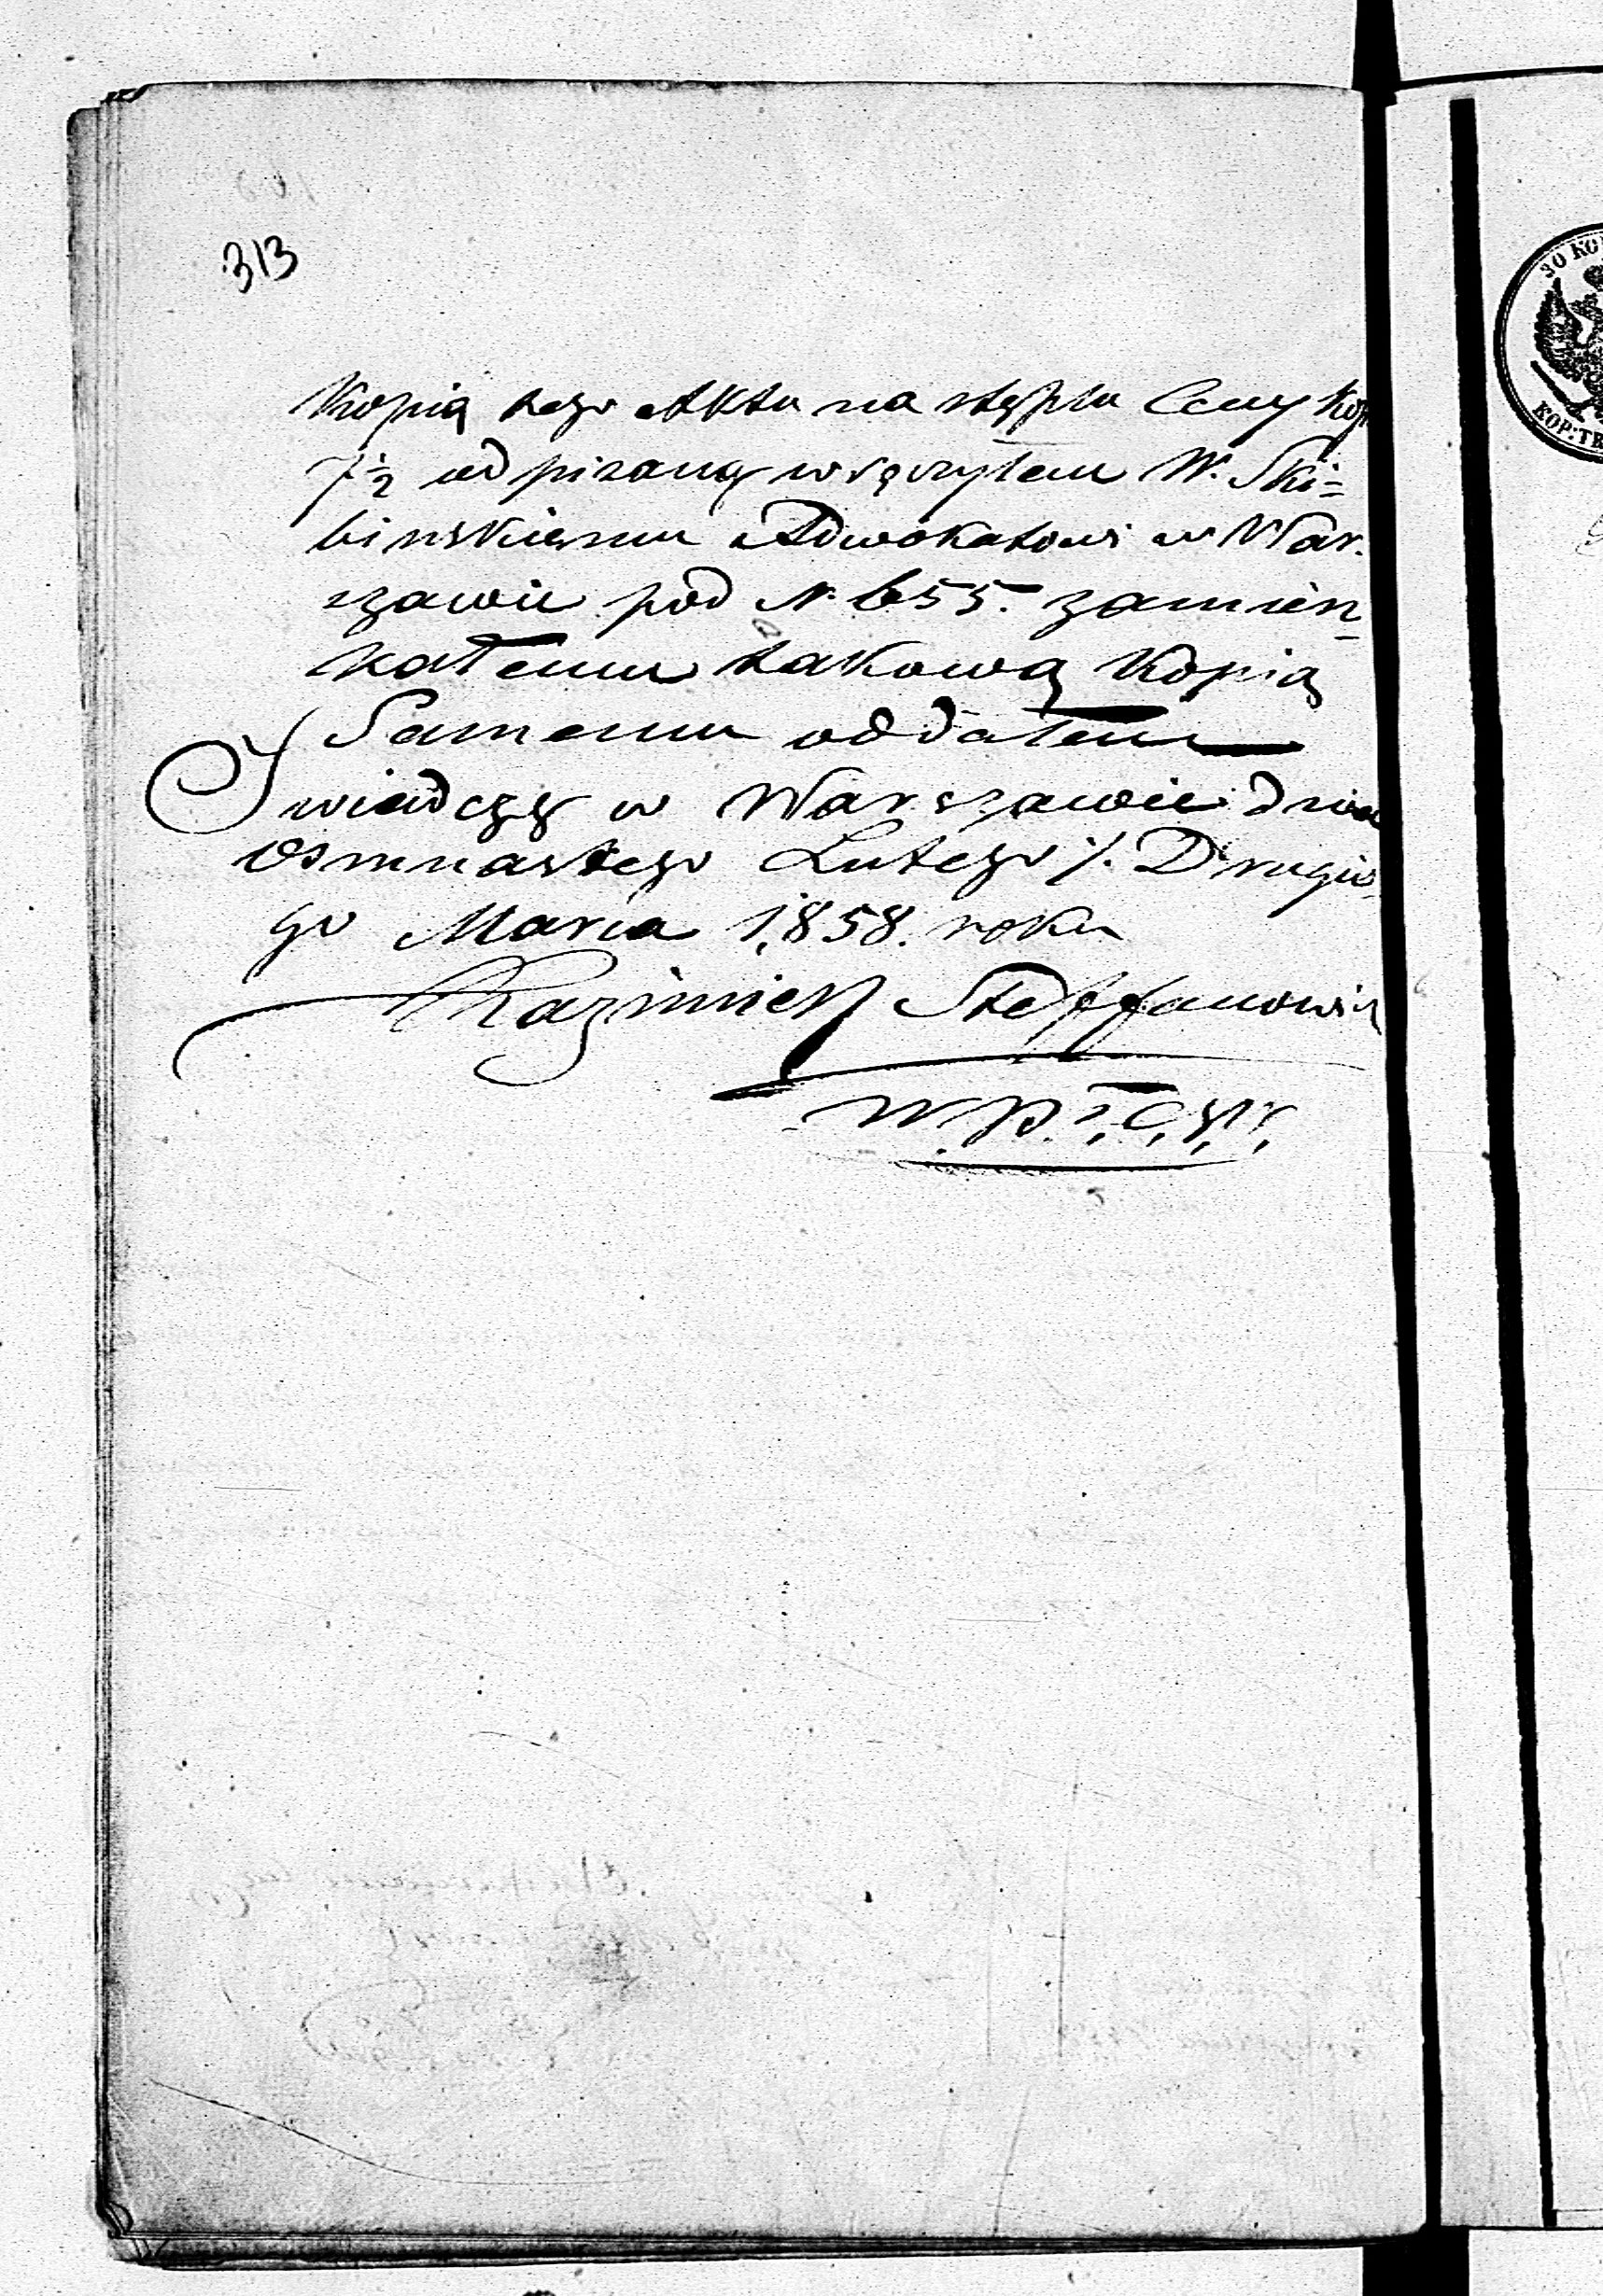 313
Kopią tego Aktu na stęplu Ceny kop
7½ odpisaną wręczyłem W. Ski=
binskiemu Adwokatowi w War.
szawie pod N. 655. zamiesz
kałemu takową Kopią
Samemu oddałem
Swiadczę w Warszawie dnia
Osmnastego Lutego /. Drugie
go Marca 1858. roku
Kazimierz Steffanowicz
30 КО
КОР:ТВ